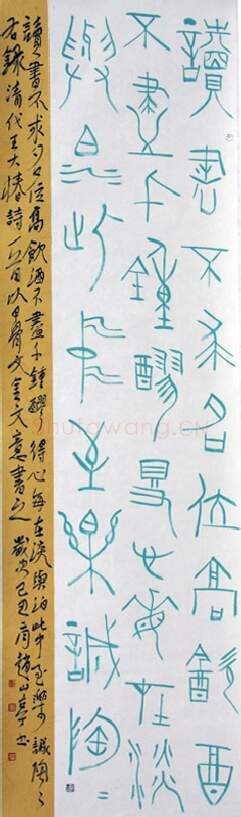 讀書不求名位高飲酒
不盡千鍾醪得心每在淡
與泊此中至樂誠陶〻
讀書不求名位高飲酒不盡千鍾醪得心每在淡與泊此中至樂誠陶〻
右錄清代王大椿詩一首以甲骨文金文意書之歲次己丑趙山亭書
shufawang.cn